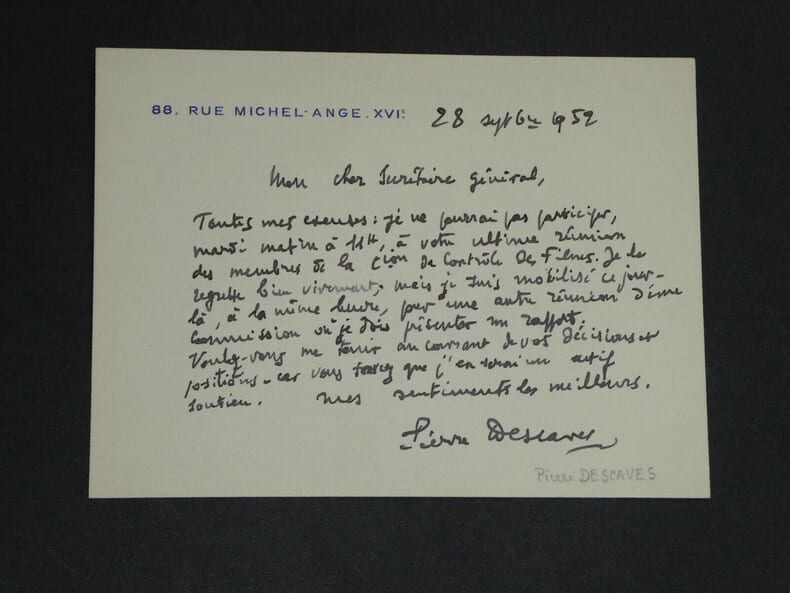 88, RUE MICHEL-ANGE. XVIᵉ
28 septbre 1952
Mon cher Secrétaire général,
Toutes mes excuses : je ne pourrai pas participer,
mardi matin à 11H, à votre ultime réunion
des membres de la Cion de Contrôle des Films. Je le
regrette bien vivement, mais je suis mobilisé ce jour-
là, à la même heure, par une autre réunion d'une
Commission où je dois présenter un rapport.
Voulez-vous me tenir au courant de vos décisions et
positions - car vous que j'en serai un actif
soutien. Mes sentiments les meilleurs.
Pierre Descaves
Pierre DESCAVES